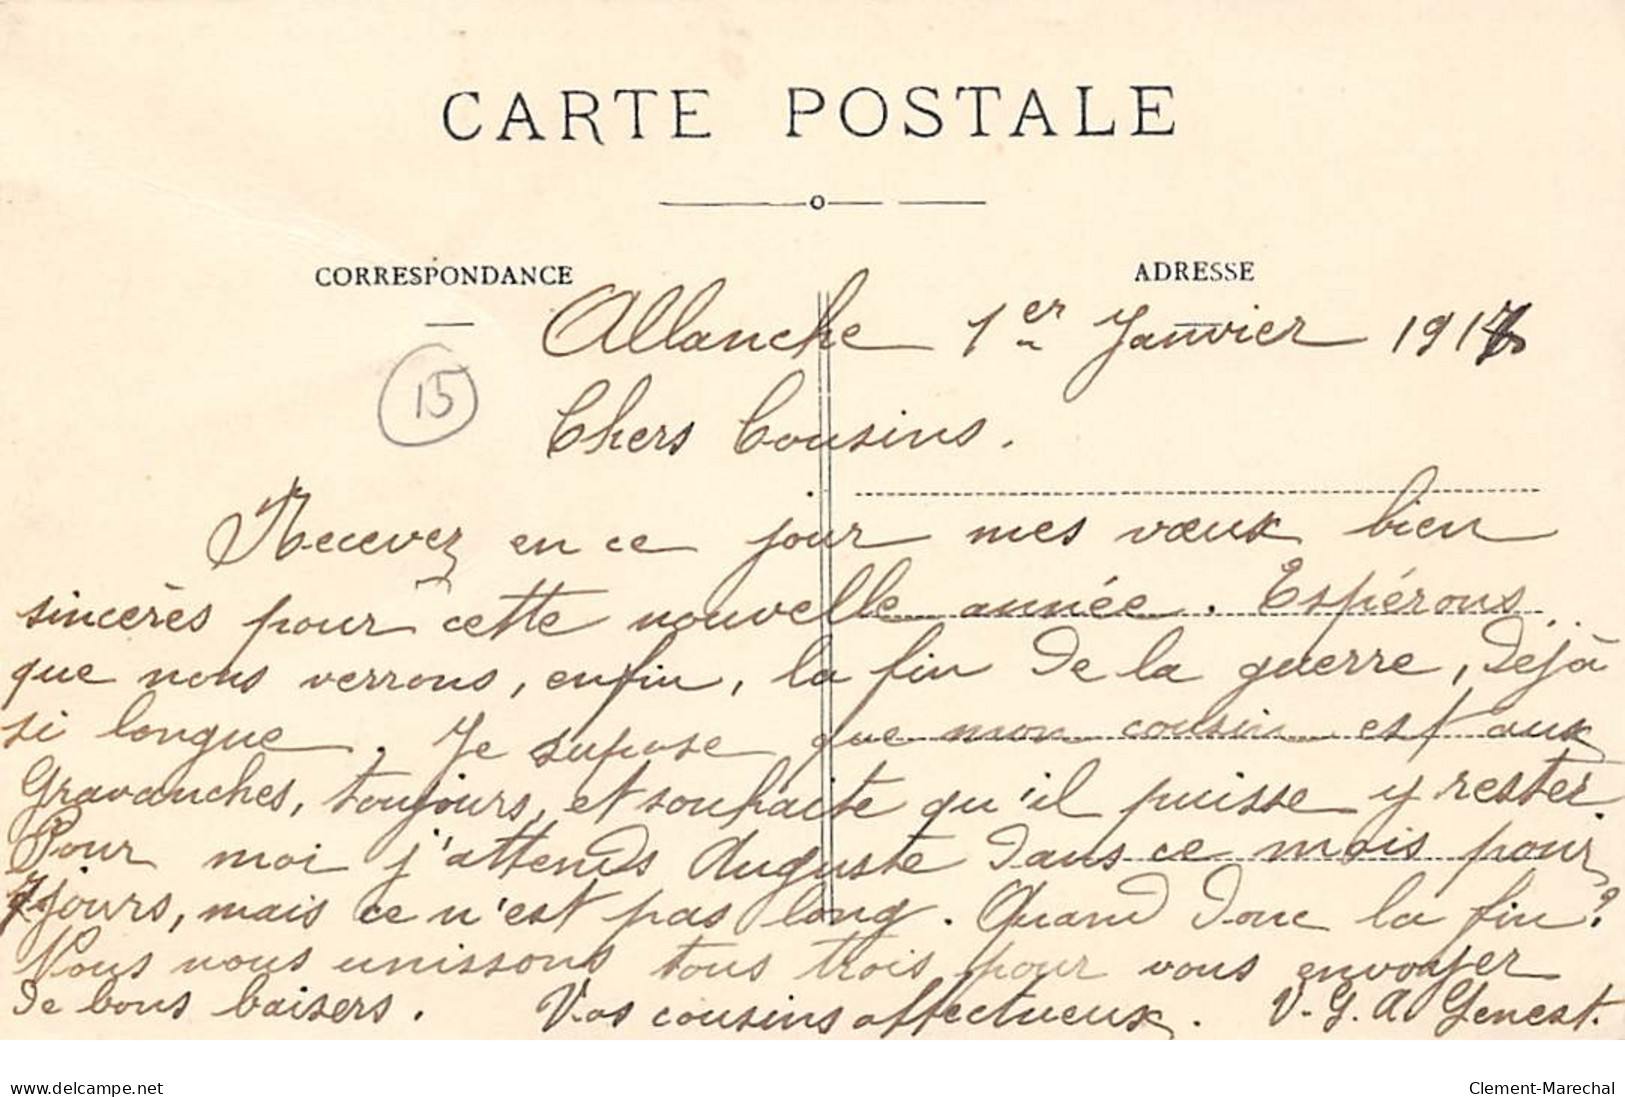 CARTE POSTALE
CORRESPONDANCE
ADRESSE
Allanche 1er Janvier 1917
15
Chers Cousins.
Recevez en ce jour mes vœux bien
sincères pour cette nouvelle année. Espérons
que nous verrons, enfin, la fin de la guerre, déjà
si longue. Je suppose que mon cousin est aux
Gravanches, toujours, et souhaite qu'il puisse y rester
Pour moi j'attends Auguste dans ce mois pour
7 jours, mais ce n'est pas long. Quand donc la fin?
Nous nous unissons tous trois pour vous envoyer
de bons baisers. Vos cousins affectueux. V. G. A. Genest.
www.delcampe.net
Clement-Marechal